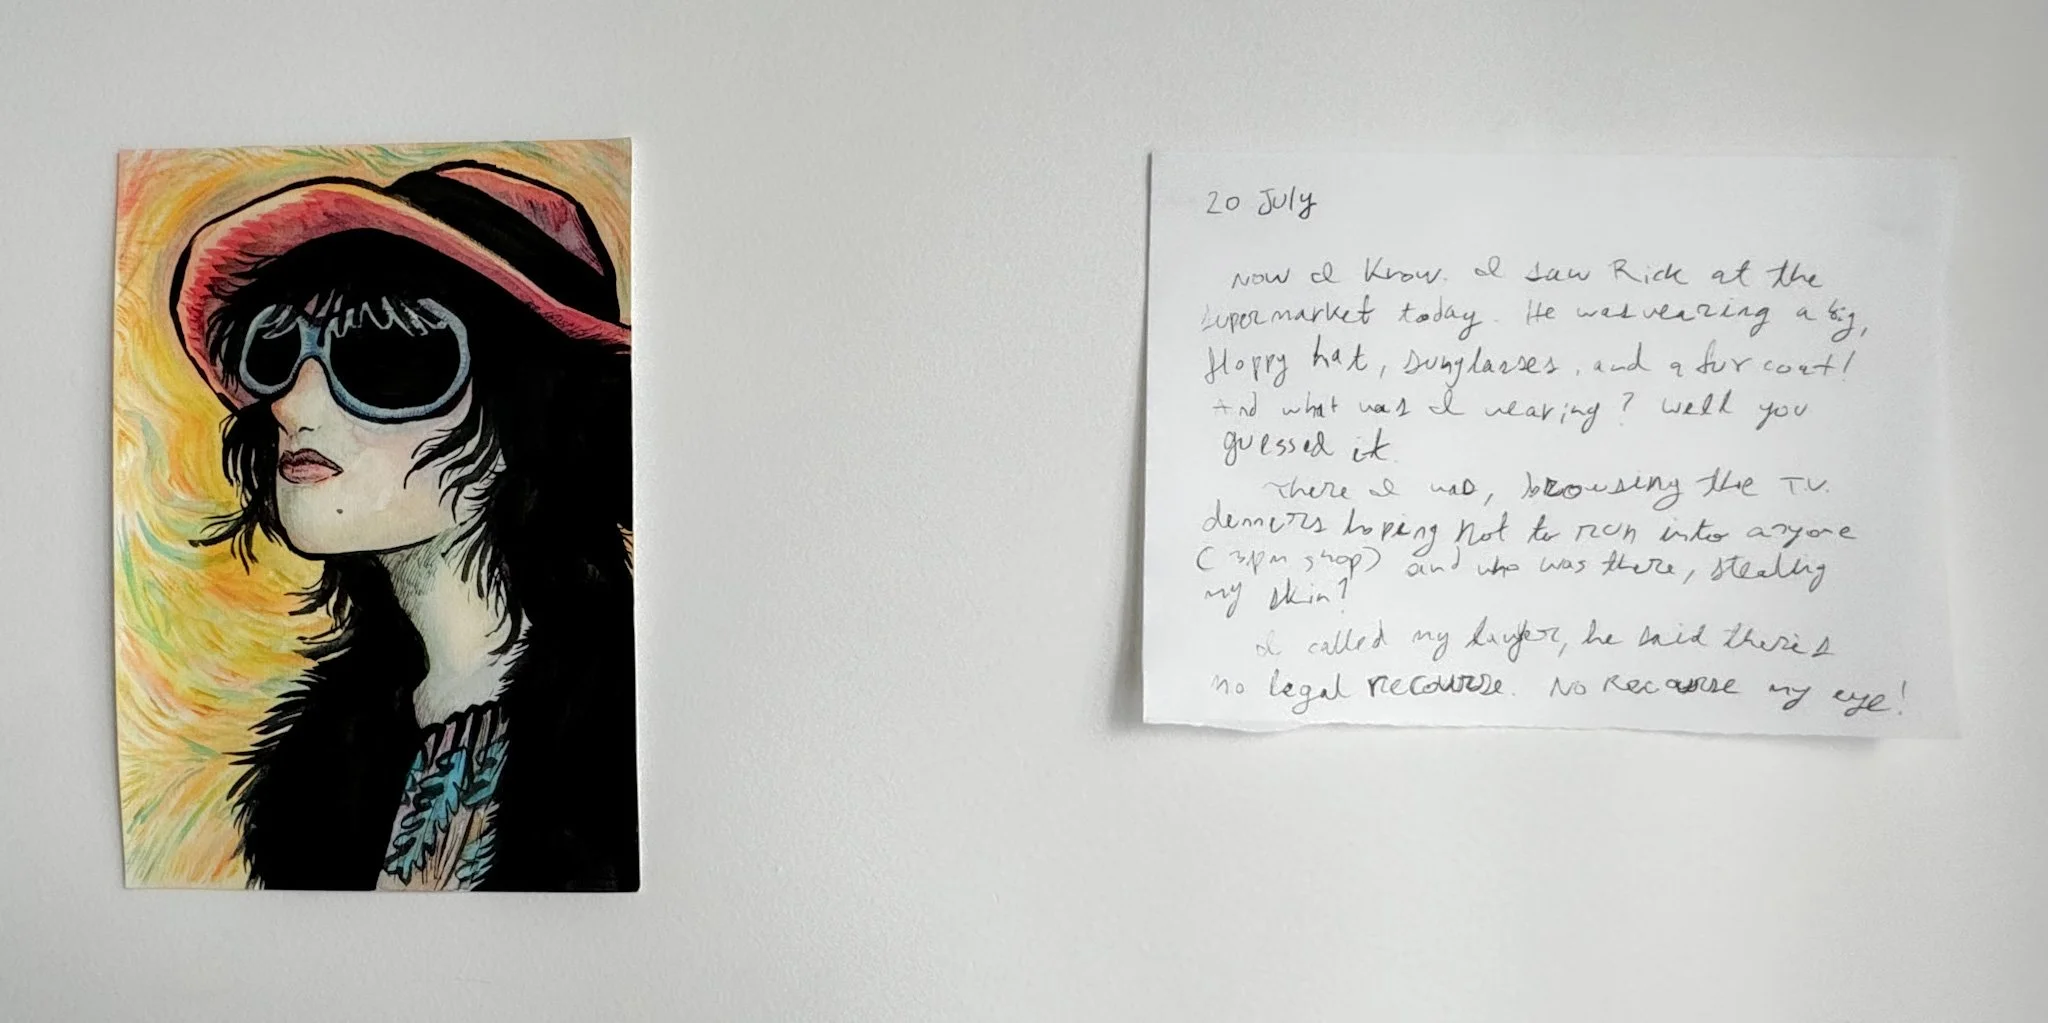 20 July
Now I know. I saw Rick at the
supermarket today. He was wearing a big,
floppy hat, sunglasses, and a fur coat!
And what was I wearing? Well you
guessed it.
There I was, browsing the T.V.
dinners hoping not to run into anyone
(3pm shop) and who was there, stealing
my skin?
I called my lawyer, he said there's
no legal recourse. No recourse my eye!